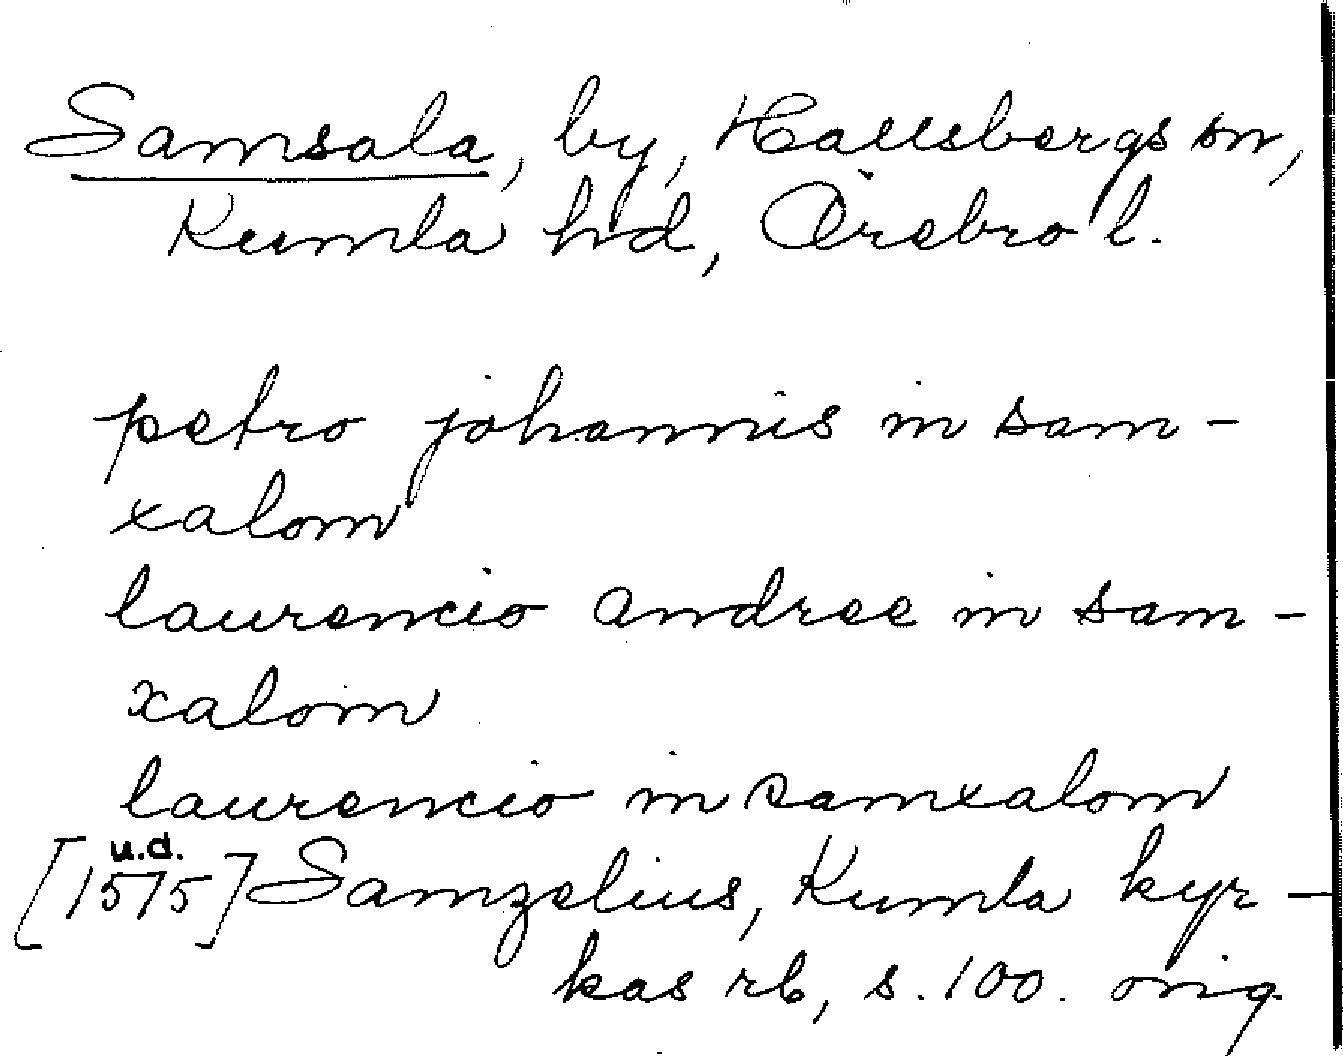 Samsala, by, Hallsbergs sn,
Kumla hd, Örebro l.
petro johannis in sam-
xalom
laurencio andree in sam-
xalom
laurencio in samxalom
u.d.
[1515] Samzelius, Kumla kyr-
kas rb, s. 100. orig